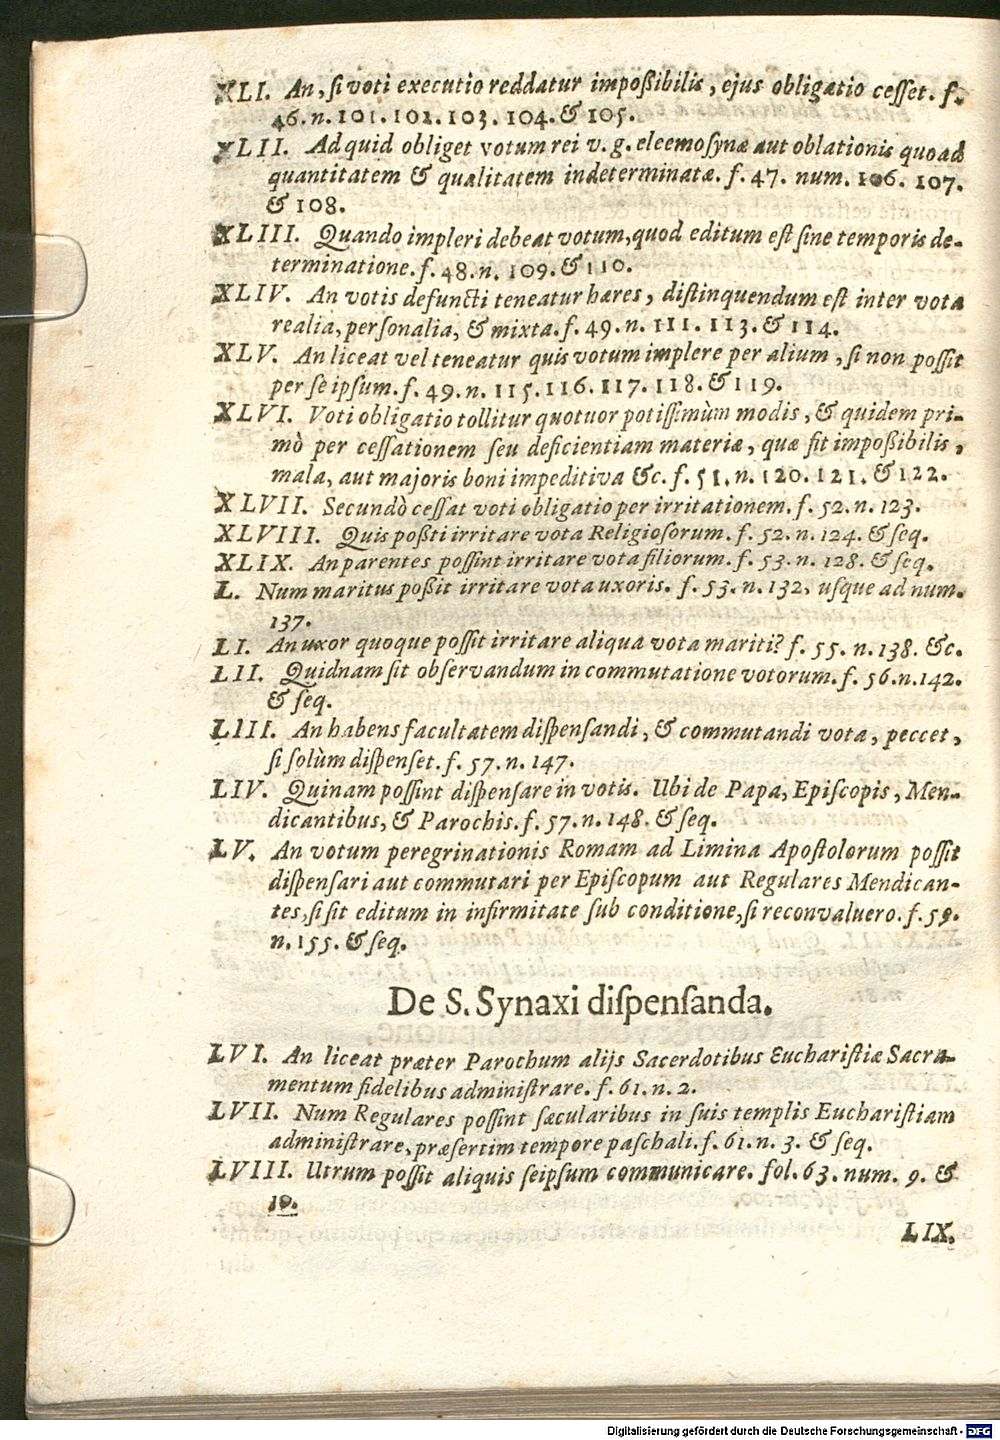 XLI. An, ſi voti executio reddatur impoßibilis, ejus obligatio ceſſet. f.
46. n. 101. 102. 103. 104. & 105.
XLII. Ad quid obliget votum rei v. g. eleemoſynæ aut oblationis quoad
quantitatem & qualitatem indeterminatæ. f. 47. num. 106. 107.
& 108.
XLIII. Quando impleri debeat votum, quod editum eſt ſine temporis de-
terminatione. f. 48. n. 109. & 110.
XLIV. An votis defuncti teneatur hæres, diſtinquendum eſt inter vota
realia, perſonalia, & mixta. f. 49. n. 111. 113. & 114.
XLV. An liceat vel teneatur quis votum implere per alium, ſi non poſſit
per ſe ipſum. f. 49. n. 115. 116. 117. 118. & 119.
XLVI. Voti obligatio tollitur quotuor potiſſimùm modis, & quidem pri-
mò per ceſſationem ſeu deficientiam materiæ, quæ fit impoßibilis,
mala, aut majoris boni impeditiva &c. f. 51. n. 120. 121. & 122.
XLVII. Secundò ceſſat voti obligatio per irritationem. f. 52. n. 123.
XLVIII. Quis poßti irritare vota Religioſorum. f. 52. n. 124. & ſeq.
XLIX. An parentes poſſint irritare vota filiorum. f. 53. n. 128. & ſeq.
L. Num maritus poßit irritare vota uxoris. f. 53. n. 132, uſque ad num.
137.
LI. An uxor quoque poſſit irritare aliqua vota mariti? f. 55. n. 138. &c.
LII. Quidnam ſit obſervandum in commutatione votorum. f. 56. n. 142.
& ſeq.
LIII. An habens facultatem diſpenſandi, & commutandi vota, peccet,
ſi ſolùm diſpenſet. f. 57. n. 147.
LIV. Quinam poſſint diſpenſare in votis. Ubi de Papa, Epiſcopis, Men-
dicantibus, & Parochis. f. 57. n. 148. & ſeq.
LV. An votum peregrinationis Romam ad Limina Apoſtolorum poſſit
diſpenſari aut commutari per Epiſcopum aut Regulares Mendican-
tes, ſi ſit editum in infirmitate ſub conditione, ſi reconvaluero. f. 59.
n. 155. & ſeq.
De S. Synaxi diſpenſanda.
LVI. An liceat præter Parochum alijs Sacerdotibus Euchariſtiæ Sacra-
mentum fidelibus adminiſtrare. f. 61. n. 2.
LVII. Num Regulares poſſint ſæcularibus in ſuis templis Euchariſtiam
adminiſtrare, præſertim tempore paſchali. f. 61. n. 3. & ſeq.
LVIII. Utrum poſſit aliquis ſeipſum communicare. fol. 63. num. 9. &
10.
LIX.
Digitalisierung gefördert durch die Deutsche Forschungsgemeinschaft - DFG